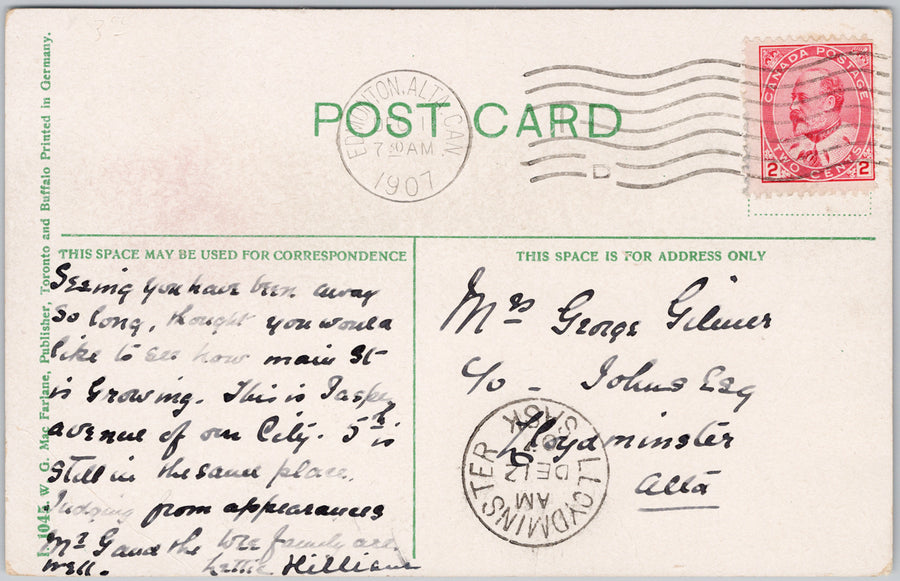 EDMONTON, ALTA. CAN.
7 30 AM
1907
POST CARD
D
CANADA POSTAGE
2 TWO CENTS 2
I. 1045. W. G. Mac Farlane, Publisher, Toronto and Buffalo Printed in Germany.
THIS SPACE MAY BE USED FOR CORRESPONDENCE
Seeing you have been away
so long, thought you would
like to see how main St
is Growing. This is Jasper
avenue of our City. 5th is
still in the same place.
Judging from appearances
Mr G and the wee family are
well. Lettie
THIS SPACE IS FOR ADDRESS ONLY
Mrs George Gilmer
c/o - Johns Esq
Lloydminster
Alta
LLOYDMINSTER
SASK
AM
DE 12